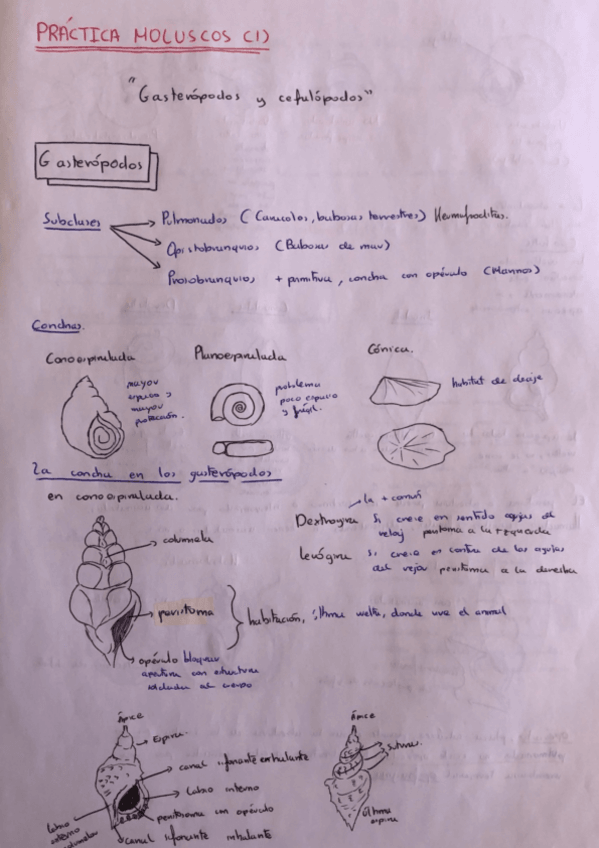 PRÁCTICA MOLUSCOS (1)
"Gasterópodos y cefalópodos"
Gasterópodos
Subclases
Pulmonados (Caracoles, babosas terrestres) Hermafroditas.
Opistobranquios (Babosas de mar)
Prosobranquios, + primitiva, concha con opérculo (Marinos)
Conchas.
Conoespiralada
Planoespiralada
Cónica.
mayor
espacio y
mayor
protección.
problema
poco espacio
y frágil.
habitat de
La concha en los gasterópodos
en conoespiralada.
la + común
Dextrógira Si crece en sentido agujas del
reloj peristoma a la
Levógira Si crece en contra de las agujas
del reloj peristoma a la derecha
columela
peristoma
habitación, última vuelta, donde vive el animal
opérculo bloquear
apertura con estructura
al cuerpo
Ápice
Espira
canal sifonante exhalante
Labro interno
peristoma con opérculo
canal sifonante inhalante
Labro
externo
columelar
Ápice
Sutura.
Última
espira